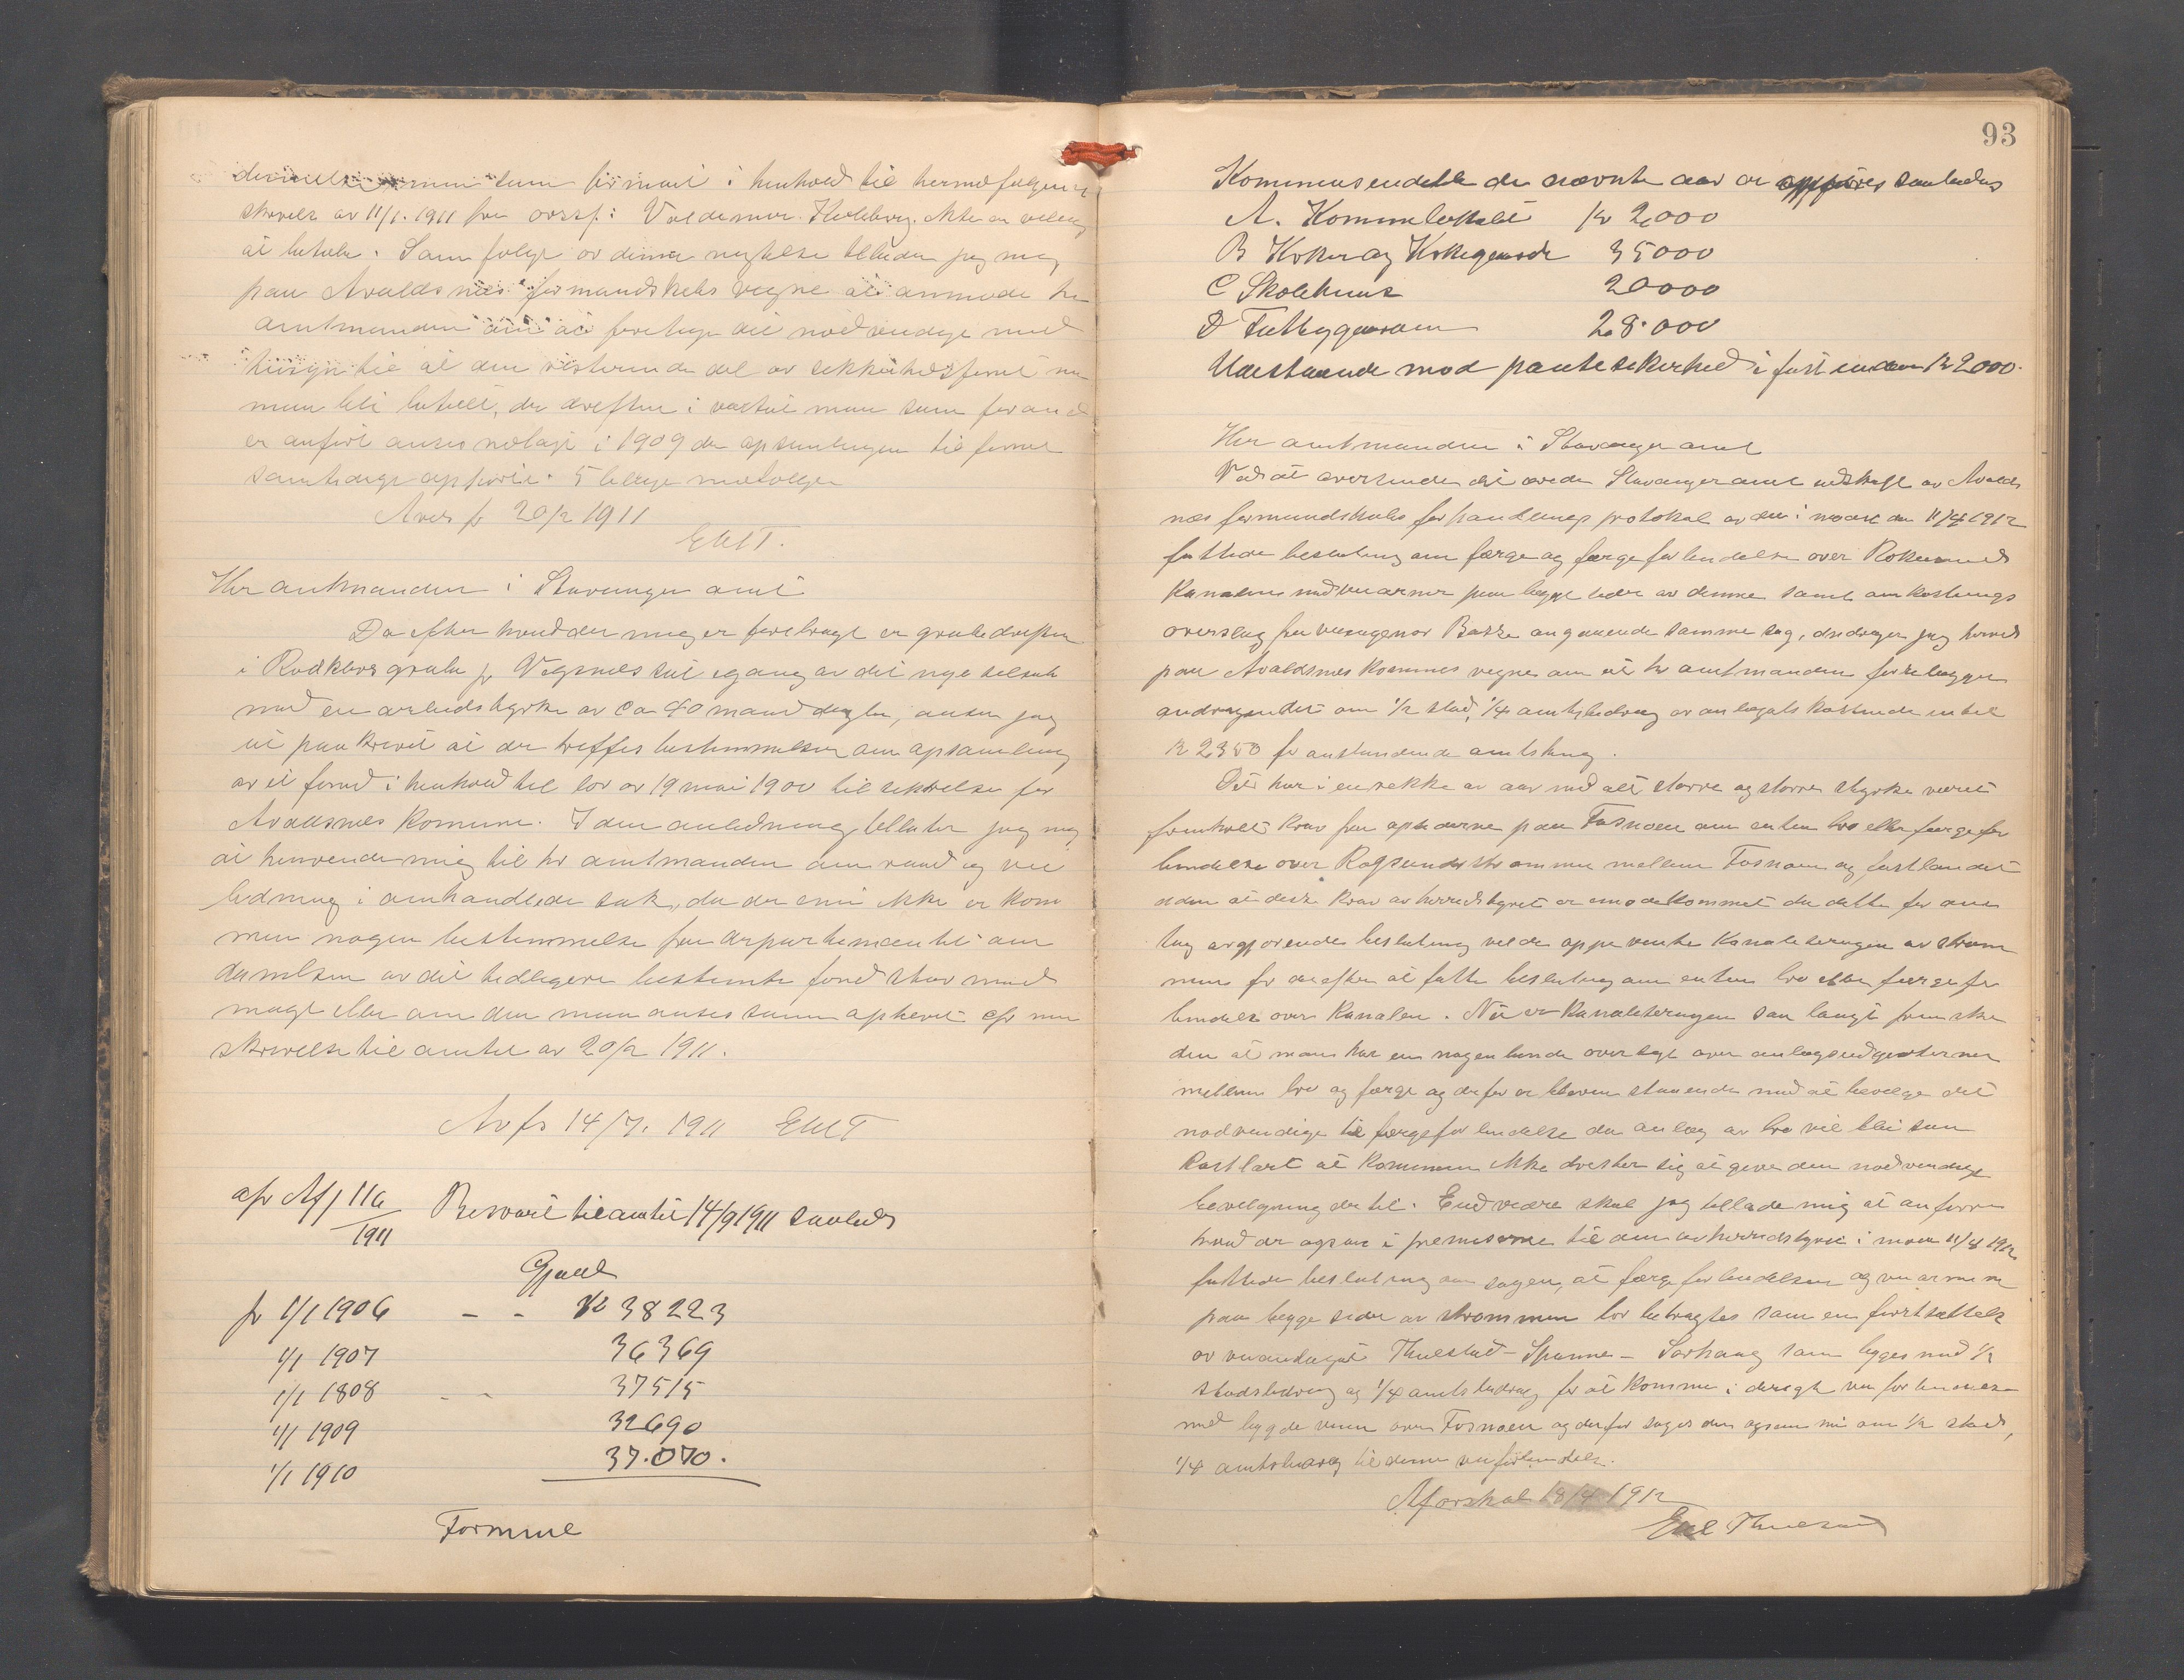 men som firmaet i henhold til hermedfølgende
skrivelse av 11/1. 1911 fra ovrsf: Valdemar ikke er villig
at betale. Som følge av denne negtelse tillader jeg mig
paa Avaldsnes formandskabs vegne at anmode hr
amtmanden om at foretage det nødvendige med
hensyn til at den resterende del av sikkerhetsfonnet
maa bli betalt, da driften i
er anført anses nedlagt i 1909 da opsamlingen til fonnet
samtidige ophørte. 5 bilage medfølger
20/2 1911
EMT.
Hr amtmanden i Stavanger amt
Da efter hvad der mig er forebragt er grubedriften
i Rødklevs grube p Vigsnes sat igang av det nye selskab
med en arbeidsstyrke av ca 40 mand daglig, anser jeg
at paakrevet at der treffes bestemmelser om opsamling
av et fond i henhold til lov av 19 mai 1900 til sikkelse for
Avaldsnes Komune. I den anledning tillater jeg mig
at henvende mig til hr amtmanden om raad og vei
ledning i omhandlede sak, da der enu ikke er kom
men nogen bestemmelse fra departementet om
dannelsen av det tidligere bestemte fond staar med
magt eller om den maa anses som ophevet cfr min
skrivelse til amtet av 20/2 1911.
14/7. 1911 EMT
cfr Afj 116/1911 Besvaret til amtet 14/9 1911 saaleds
Gjæld
pr 1/1 1906 - - kr 38223
1/1 1907 36369
1/1 1808 - - 37515
1/1 1909 32690
1/1 1910 37.070.
Formue
93
Kommunens de nævnte aar er opføres saaledes
A. Komunelokalet kr 2,000
B Kirker og Kirkegaarde 35000
C Skolehus 20000
D Fattiggaarden 28.000
Udestaaende mod pantesikerhed i fast eiendom kr 2000.
Hr amtmanden i Stavanger amt
Ved at oversende det ærede Stavanger amt utskrift av Avalds
nes formandskabs forhandlings protokol av den i møde den 11/4 1912
fattede beslutning om færge og færgeforbindelse over
Kanalen med veiarmer paa begge sider av denne samt omkostnings
overslag fra veiingeniør angaaende samme sag, andrager jeg herved
paa Avaldsnes Kommunes vegne om at hr amtmanden forelægger
andragendet om 1/2 stads, 1/4 amtsbidrag av anlægets kostende
kr 2350 for anstundende amtsting.
Det har i en rekke av aar med alt større og større styrke været
fremholdt krav fra opsiderne paa Fosnøen om enten bro eller færgefor
bindelse over strømmen mellem Fosnøen og fastlandet
uden at disse krav av herredsstyret er imødekommet da dette før
tog avgjørende beslutning vilde oppe vente Kanaliseringen av strøm
men for derefter at fatte beslutning om enten bro eller færgefor
bindelse over Kanalen. Nu er Kanaliseringen saa langt fremskre
den at man har en nogenlunde oversigt over anlægsudgifterne
mellem bro og færge og derfor er bleven staaende med at bevilge det
nødvendige til færgeforbindelse da anlæg av bro vil bli saa
kostbart at Komunen ikke drister sig at give den nødvendige
bevilgning dertil. Endvidere skal jeg tillade mig at anføre
hvad der ogsaa i premisserne til den av herredsstyret i møde 11/4 1912
fattede beslutning om sagen, at færgeforbindelsen og veiarmene
paa begge sider av strømmen bør betragtes som en fortsættelse
av veianlæget Thuestad - Spanne - Sørhaug som bygges med 1/2
stadsbidrag og 1/4 amtsbidrag for at komme i direkte veiforbindelse
med bygde veien over Fosnøen og derfor søges den ogsaa nu om 1/2 stads,
1/4 amtsbidrag til denne veiforbindelse.
18/4 1912